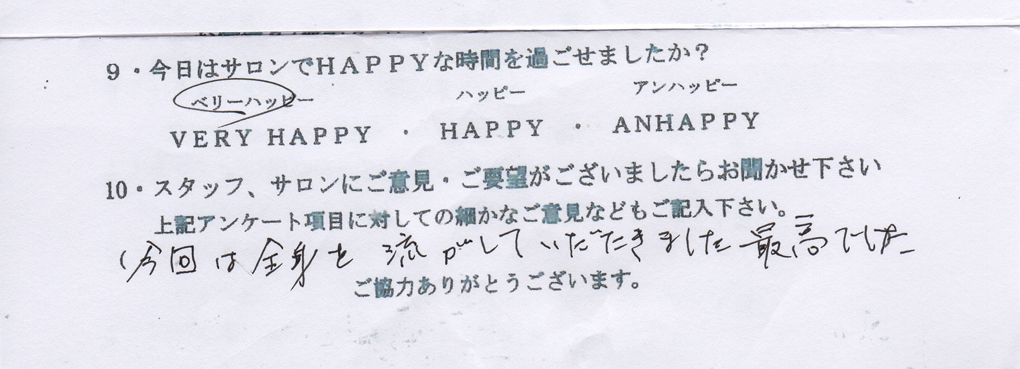 9・今日はサロンでHAPPYな時間を過ごせましたか？
ベリーハッピー ハッピー アンハッピー
VERY HAPPY ・ HAPPY ・ ANHAPPY
10・スタッフ、サロンにご意見・ご要望がございましたらお聞かせ下さい
上記アンケート項目に対しての細かなご意見などもご記入下さい。
今回は全身を流がしていだだきました最高でした
ご協力ありがとうございます。